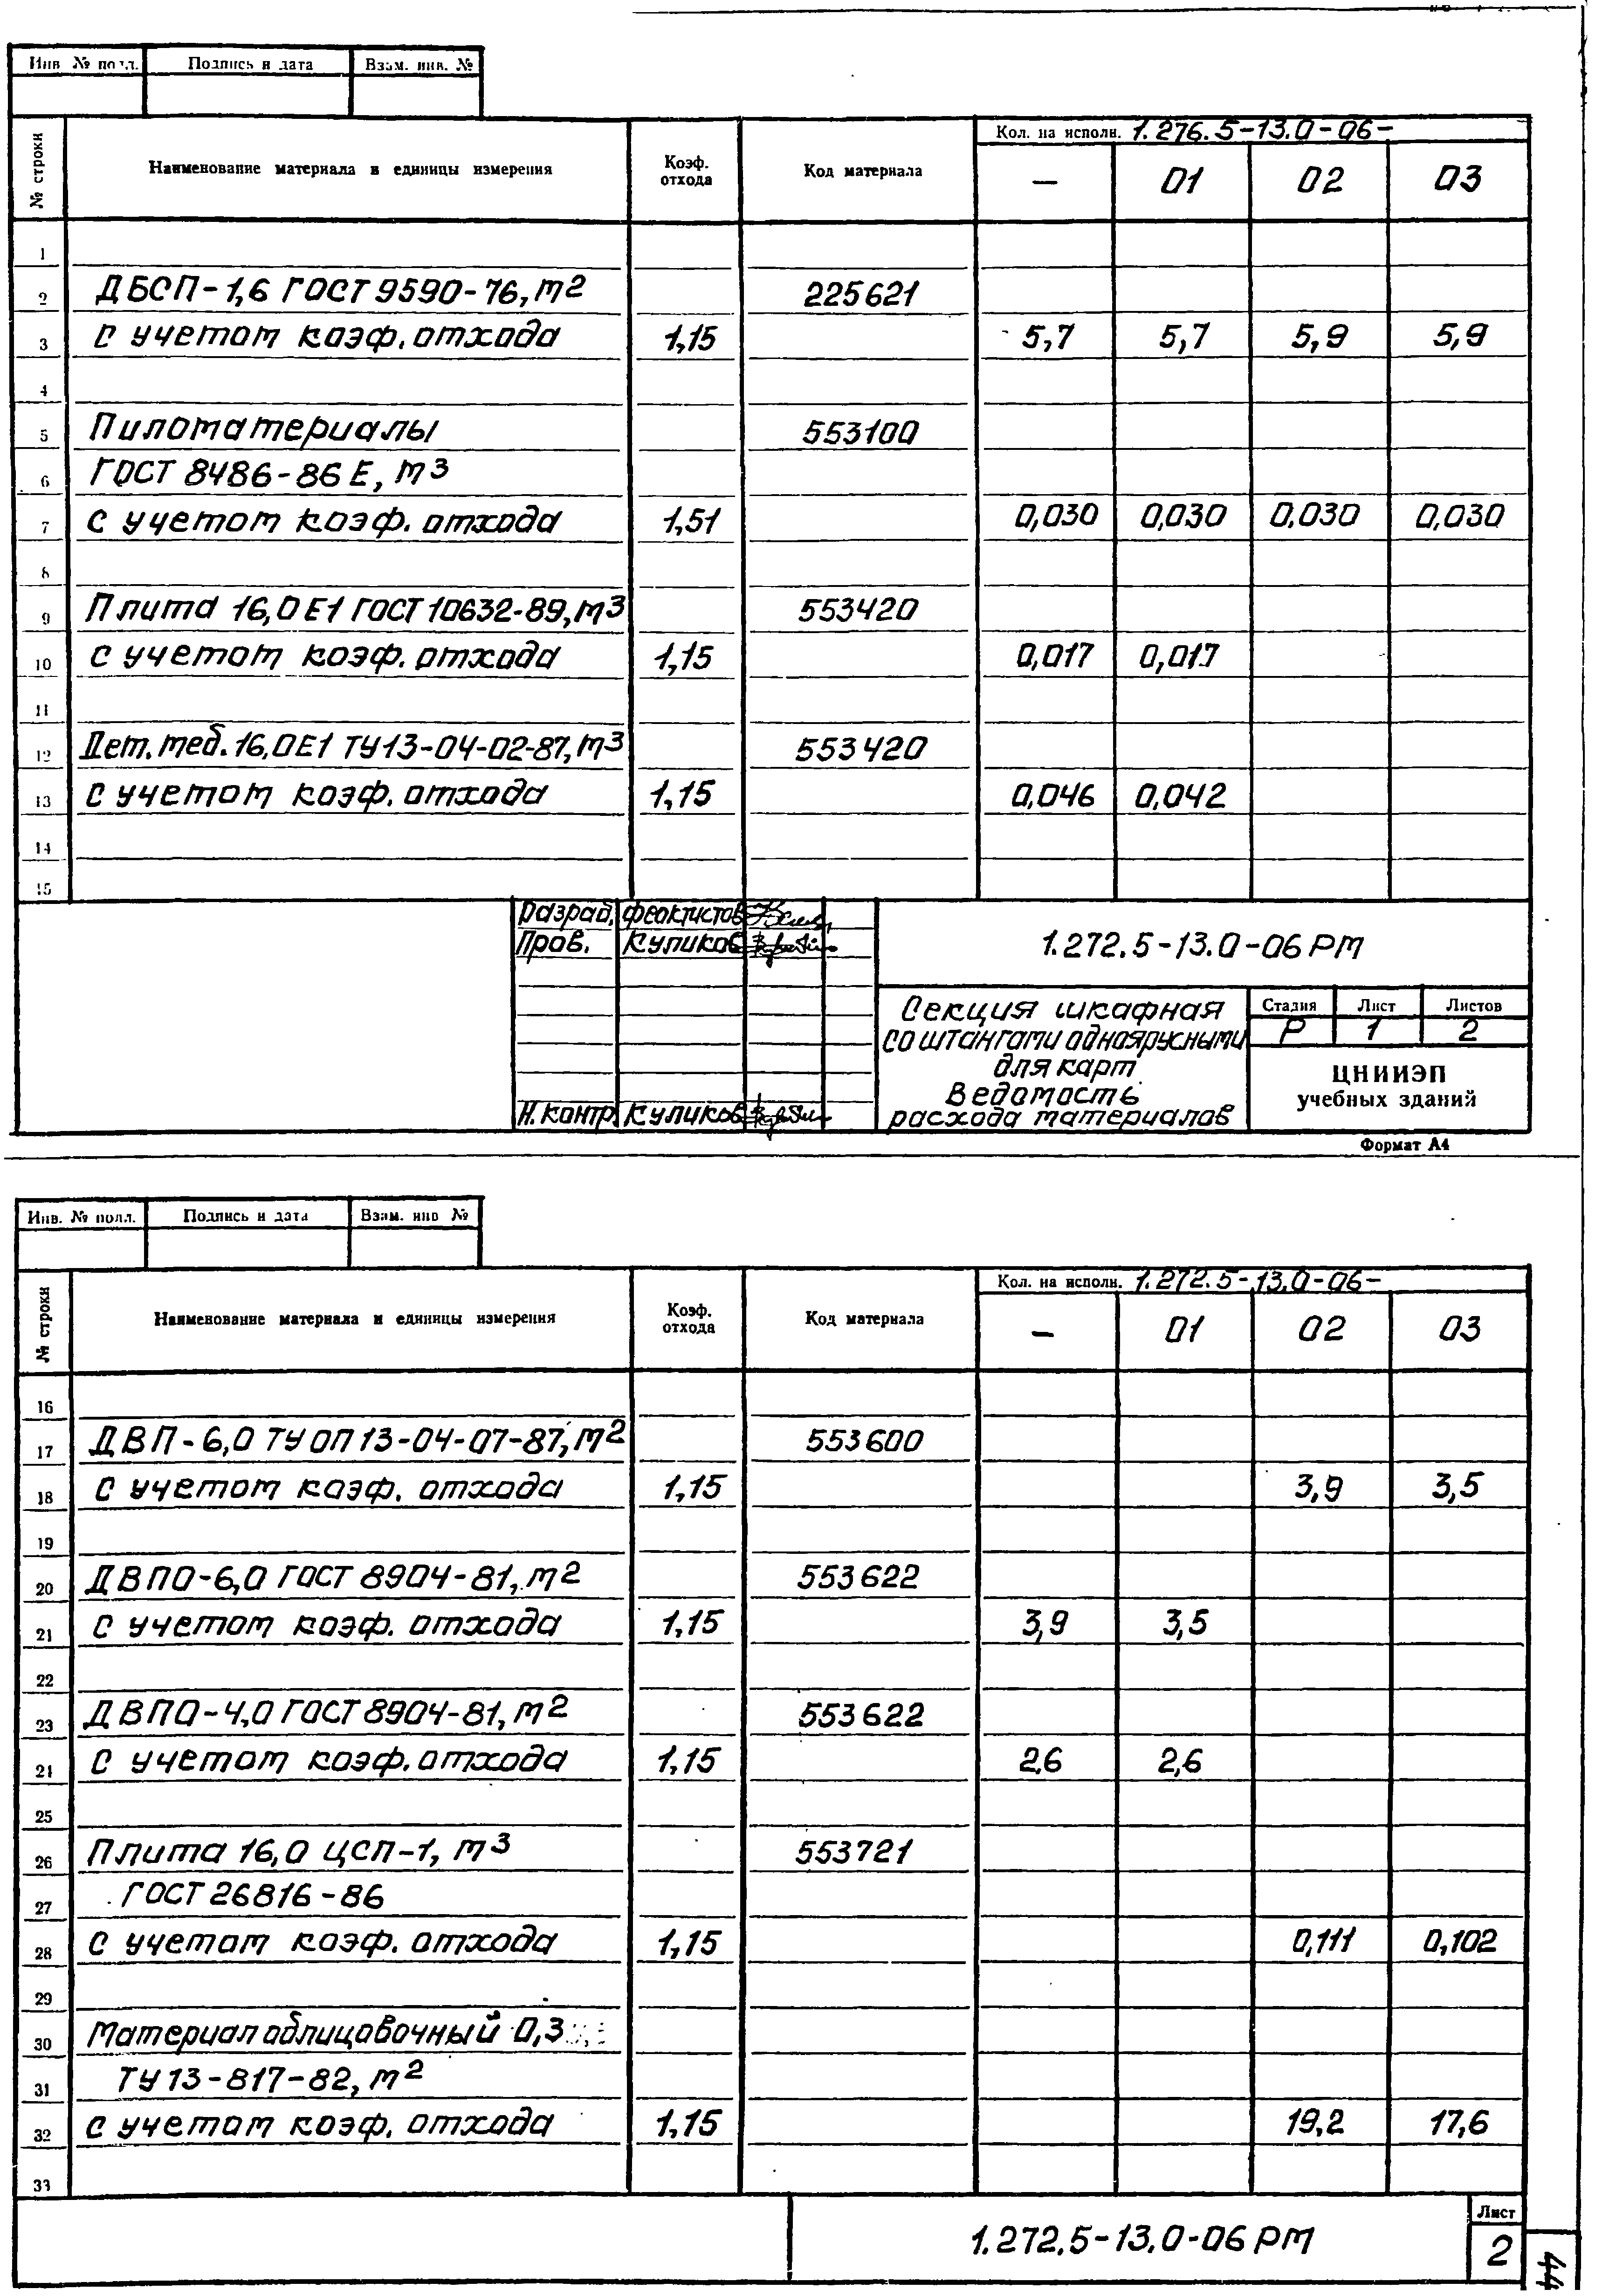 Инв № подл. Подпись и дата Взам. инв. №
№ строки Наименование материала и единицы измерения Коэф. отхода Код материала Кол. на исполн. 1.276.5-13.0-06-
— 01 02 03
1
2 ДБСП-1,6 ГОСТ 9590-76, м2 225621
3 с учетом коэф. отхода 1,15 5,7 5,7 5,9 5,9
4
5 Пиломатериалы 553100
6 ГОСТ 8486-86 Е, м3
7 с учетом коэф. отхода 1,51 0,030 0,030 0,030 0,030
8
9 Плита 16,0 Е1 ГОСТ 10632-89, м3 553420
10 с учетом коэф. отхода 1,15 0,017 0,017
11
12 Дет. меб. 16,0Е1 ТУ13-04-02-87, м3 553420
13 с учетом коэф. отхода 1,15 0,046 0,042
14
15
Разраб. Феоктистов
Пров. Куликов
Н. контр. Куликов
1.272.5-13.0-06 РМ
Секция шкафная
со штангами одноярусными
для карт
Ведомость
расхода материалов
Стадия Лист Листов
Р 1 2
ЦНИИЭП
учебных зданий
Формат А4
Инв. № подл. Подпись и дата Взам. инв №
№ строки Наименование материала и единицы измерения Коэф. отхода Код материала Кол. на исполн. 1.272.5-13.0-06-
— 01 02 03
16
17 ДВП-6,0 ТУ ОП 13-04-07-87, м2 553600
18 с учетом коэф. отхода 1,15 3,9 3,5
19
20 ДВПО-6,0 ГОСТ 8904-81, м2 553622
21 с учетом коэф. отхода 1,15 3,9 3,5
22
23 ДВПО-4,0 ГОСТ 8904-81, м2 553622
24 с учетом коэф. отхода 1,15 2,6 2,6
25
26 Плита 16,0 ЦСП-1, м3 553721
27 ГОСТ 26816-86
28 с учетом коэф. отхода 1,15 0,111 0,102
29
30 Материал облицовочный 0,3
31 ТУ 13-817-82, м2
32 с учетом коэф. отхода 1,15 19,2 17,6
33
1.272.5-13.0-06 РМ
Лист
2
44